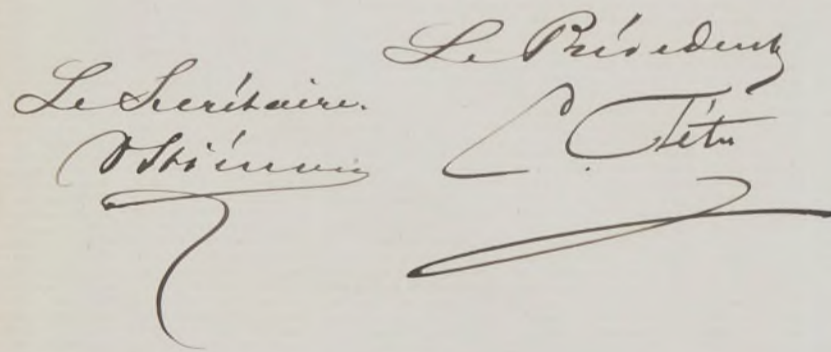 Le Secrétaire.
Le Président
C. Tétu